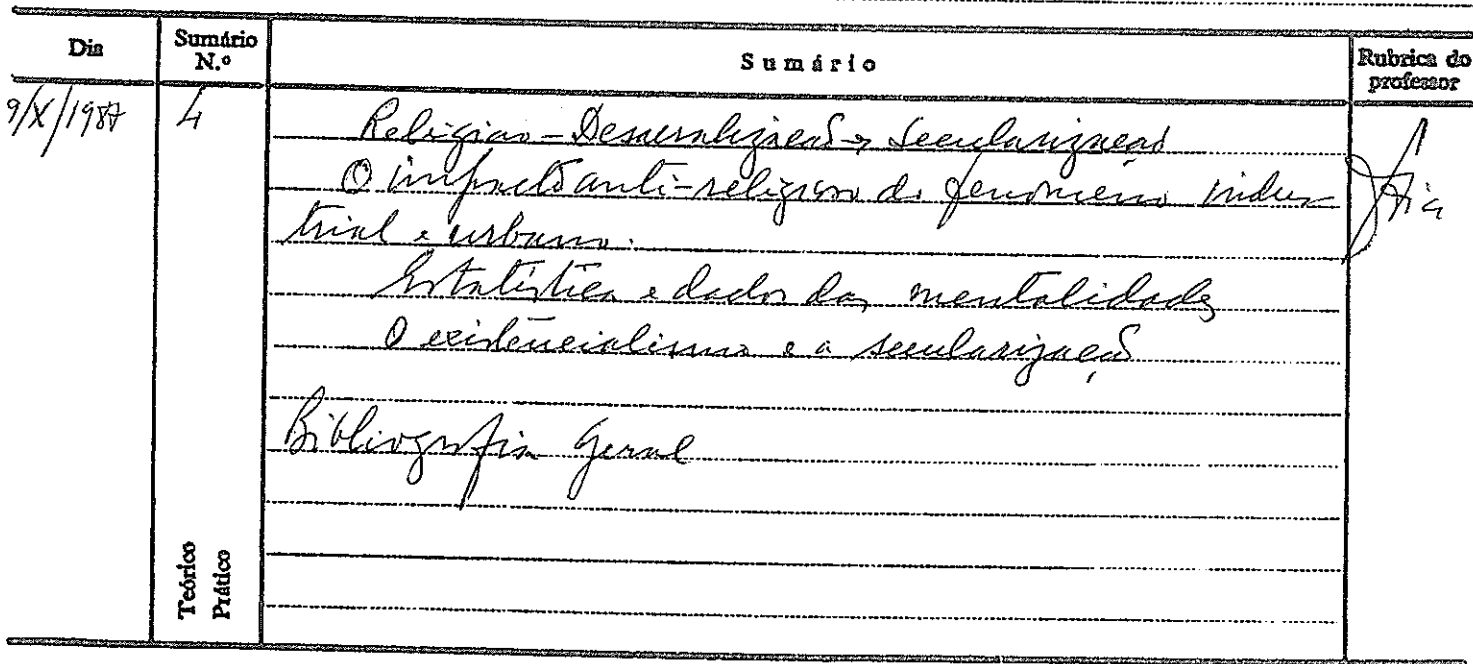 Dia Sumário N.º Sumário Rubrica do professor
9/X/1987 4 Religião - Dessacralização e Secularização
O impacto anti-religioso do fenómeno indus
trial e urbano.
Estatística e dados das mentalidades
O existencialismo e a secularização
Bibliografia Geral
Teórico
Prático